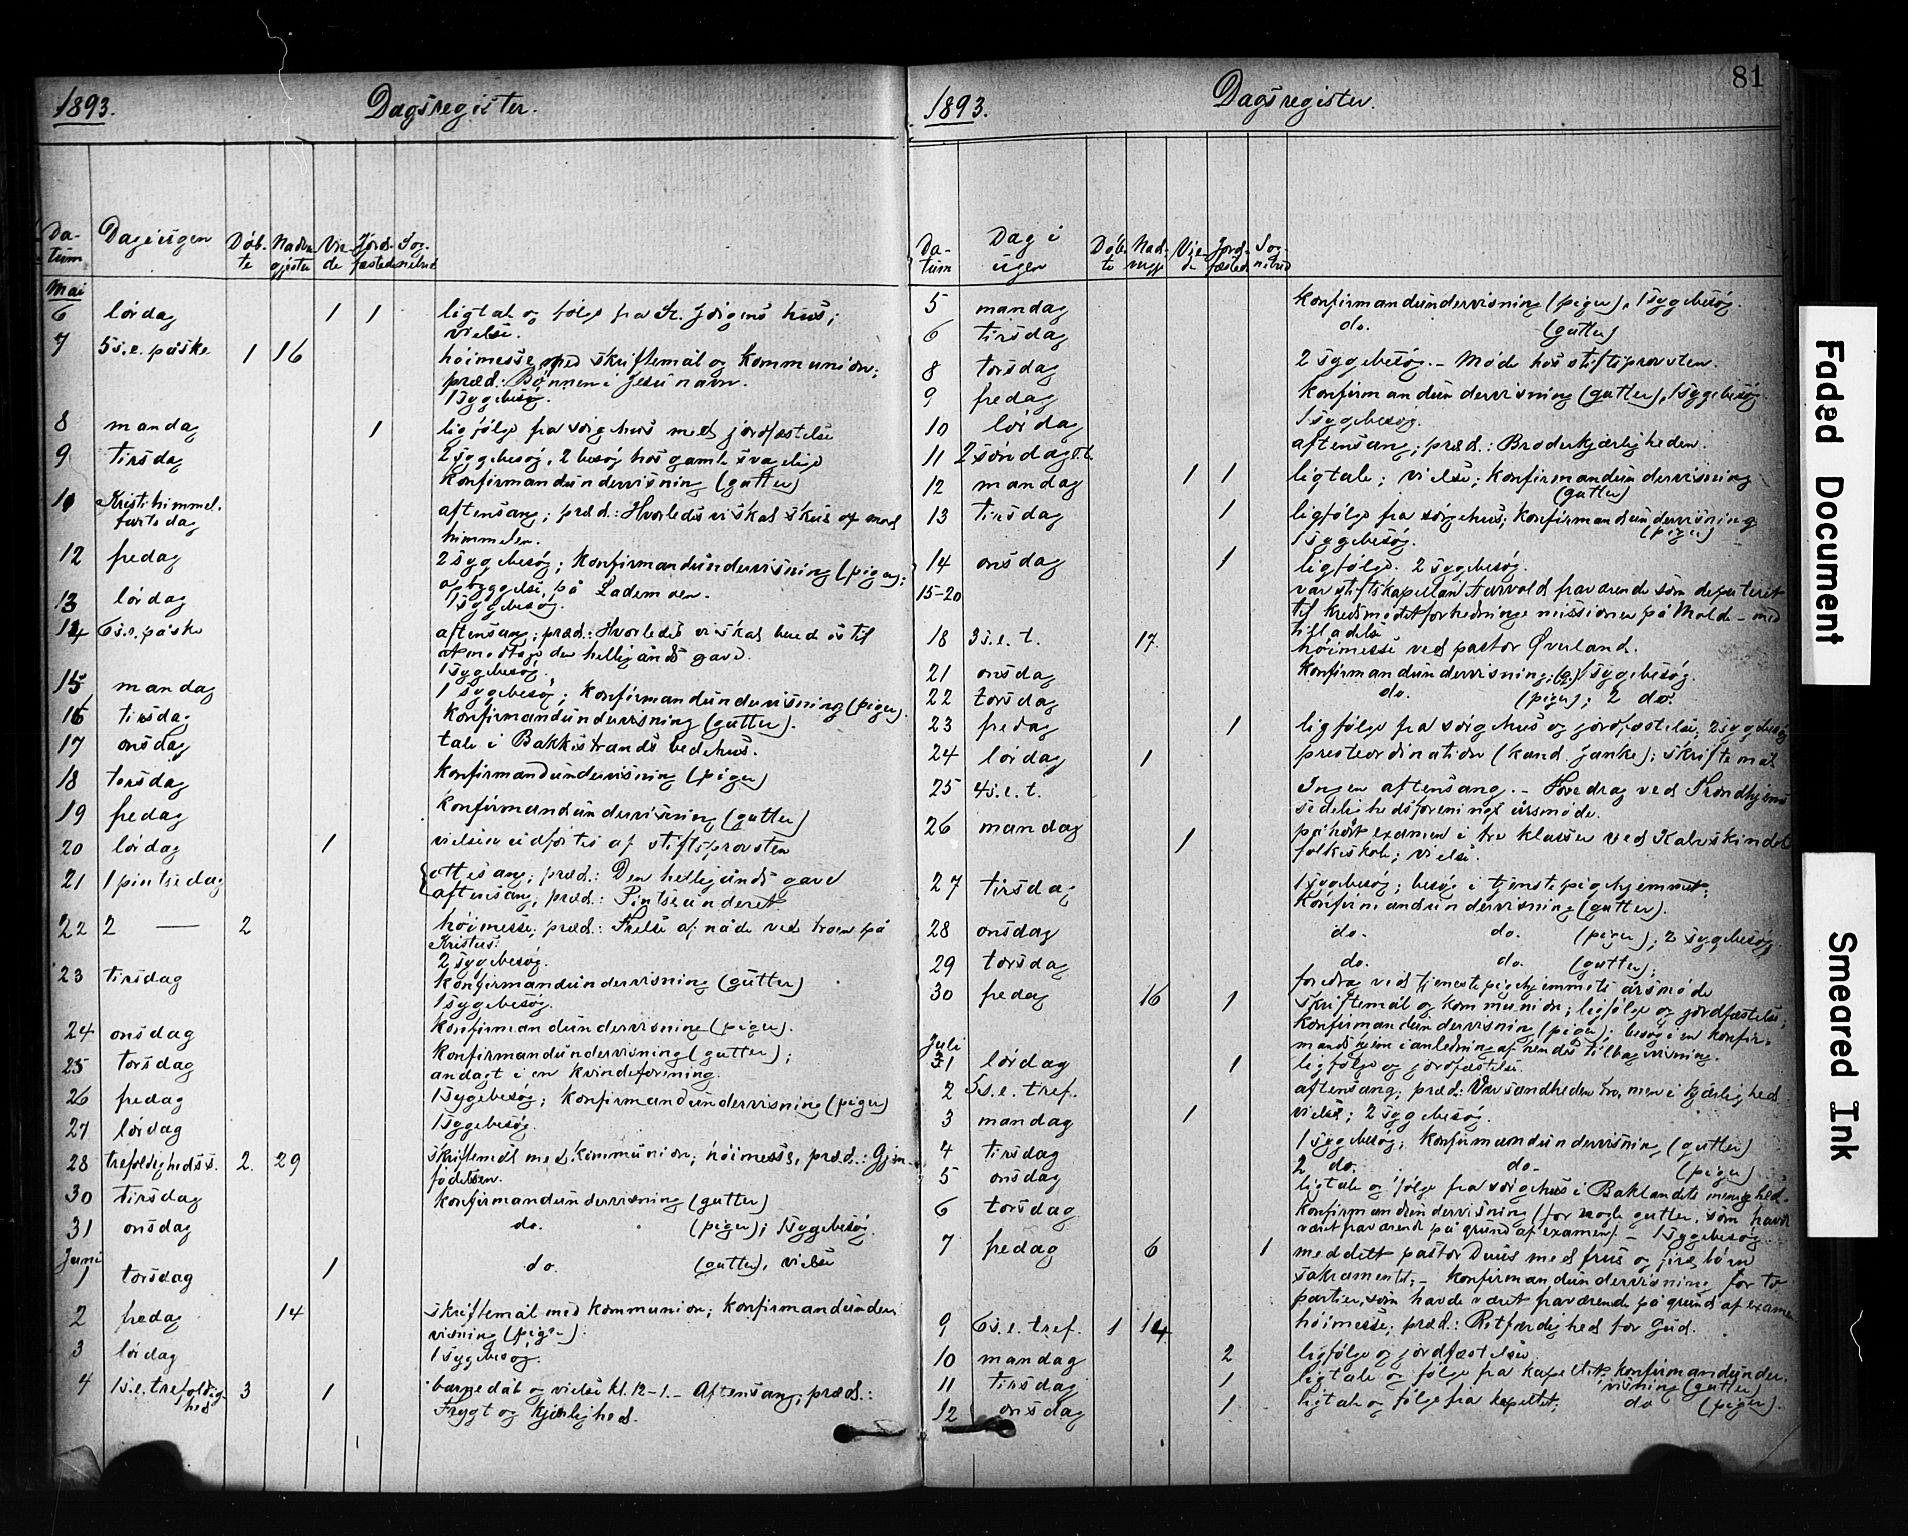 1893. Dagsregister.
Da-tum Dag i ugen Døb-te Nadv. gjester Vie-de Jordfæstede Sog-nebud
Mai
6 lørdag 1 1 ligtale og følge fra St. Jørgens hus;
vielse.
7 5 s. e. påske 1 16 høimesse med skriftemål og kommunion;
præd.: Bønnen i Jesu navn.
1 sygebesøg.
8 mandag 1 ligfølge fra sørgehus med jordfæstelse
9 tirsdag 2 sygebesøg, 2 besøg hos gamle svagelige
konfirmandundervisning (gutter)
11 Kristi himmel-
fartsdag aftensang; præd.: Hvorledes vi skal skue op mod
himmelen.
12 fredag 2 sygebesøg; konfirmandundervisning (piger);
opbyggelse på Lademoen.
13 lørdag 1 sygebesøg.
14 6 s. e. påske aftensang; præd.: Hvorledes vi skal berede os til
at modtage den helligånds gave.
1 sygebesøg.
15 mandag 1 sygebesøg; konfirmandundervisning (piger).
16 tirsdag konfirmandundervisning (gutter).
17 onsdag tale i Bakkestrands bedehus.
18 torsdag konfirmandundervisning (piger)
19 fredag konfirmandundervisning (gutter)
20 lørdag 1 vielsen udførtes af stiftsprovsten
21 1 pintsedag ottesang; præd.: Den helligånds gave
aftensang, præd.: Pintseunderet.
22 2 — 2 høimesse; præd.: Frelse af nåde ved troen på
Kristus.
2 sygebesøg.
23 tirsdag konfirmandundervisning (gutter)
1 sygebesøg.
24 onsdag konfirmandundervisning (piger).
25 torsdag konfirmandundervisning (gutter);
andagt i en kvindeforening.
26 fredag 1 sygebesøg; konfirmandundervisning (piger)
27 lørdag 1 sygebesøg.
28 trefoldighedss. 2. 29 skriftemål med kommunion; høimesse, præd.: Gjen-
fødelsen.
30 tirsdag konfirmandundervisning (gutter)
31 onsdag do. (piger); 1 sygebesøg.
Juni
1 torsdag 1 do. (gutter), vielse
2 fredag 14 skriftemål med kommunion; konfirmandunder-
visning (piger).
3 lørdag 1 sygebesøg.
4 1 s. e. trefoldig-
hed 3 1 barnedåb og vielse kl. 12-1. - Aftensang, præd.:
Frygt og kjærlighed.
81
1893. Dagsregister.
Da-tum Dag i ugen Døb-te Nad-vergj. Vie-de Jord-fæstede So-gnebud
5 mandag konfirmandundervisning (piger), 1 sygebesøg.
6 tirsdag do. (gutter)
8 torsdag 2 sygebesøg. - Møde hos stiftsprovsten.
9 fredag konfirmandundervisning (gutter), 1 sygebesøg.
10 lørdag 1 sygebesøg.
11 2 søndag e. t. aftensang; præd.: Broderkjærligheden.
12 mandag 1 1 ligtale; vielse; konfirmandundervisning
(gutter)
13 tirsdag 1 ligfølge fra sørgehus; konfirmandundervisning
(piger)
1 sygebesøg.
14 onsdag 1 ligfølge. 2 sygebesøg.
15-20 var stiftskapellan Aarvold fraværende som deputeret
til kredsmødet for hedningemissionen på Molde - med
tilladelse
18 3 s. e. t. 17. høimesse ved pastor Øverland.
21 onsdag konfirmandundervisning; (g.) 1 sygebesøg.
22 torsdag do. (piger); 2 do.
23 fredag 1 ligfølge fra sørgehus og jordfæstelse, 2 sygebesøg
24 lørdag 1 presteordination (kand. Janke); skriftemål
25 4 s. e. t. Ingen aftensang. - Foredrag ved Trondhjems
sedelighedsforenings årsmøde.
26 mandag 1 påhørt examen i tre klasser ved Kalvskindets
folkeskole; vielse.
27 tirsdag 1 sygebesøg; besøg i tjenestepigehjemmet;
konfirmandundervisning (gutter).
28 onsdag do. do. (piger); 2 sygebesøg.
29 torsdag do. do. (gutter);
foredrag ved tjenestepigehjemmets årsmøde
30 fredag 16 1 skriftemål og kommunion; ligfølge og jordfæstelse;
konfirmandundervisning (piger); besøg i en konfir-
mands hjem i anledning af hendes tilbagevisning.
Juli
1 lørdag 1 ligfølge og jordfæstelse.
2 5 s. e. tref. aftensang, præd.: Vær sandheden tro, men i kjærlighed
3 mandag 1 vielse; 2 sygebesøg.
4 tirsdag 1 sygebesøg; konfirmandundervisning (gutter)
5 onsdag 2 do. do. (piger)
6 torsdag ligtale og følge fra sørgehus i Baklandets menighed.
konfirmandundervisning (for nogle gutter, som havde
været fraværende på grund af examen). - 1 sygebesøg.
7 fredag 6 1 meddelt pastor Duus med frue og fire børn
sakramentet; - konfirmandundervisning for to
partier, som havde været fraværende på grund af examen
9 6 s. e. tref. 1 14 høimesse; præd.: Retfærdighed for Gud.
10 mandag 2 ligfølge og jordfæstelse.
11 tirsdag 1 ligtale og følge fra kapellet. konfirmandunder-
visning (gutter)
12 onsdag 1 ligtale og følge fra kapellet; do (piger).
Faded Document
Smeared Ink